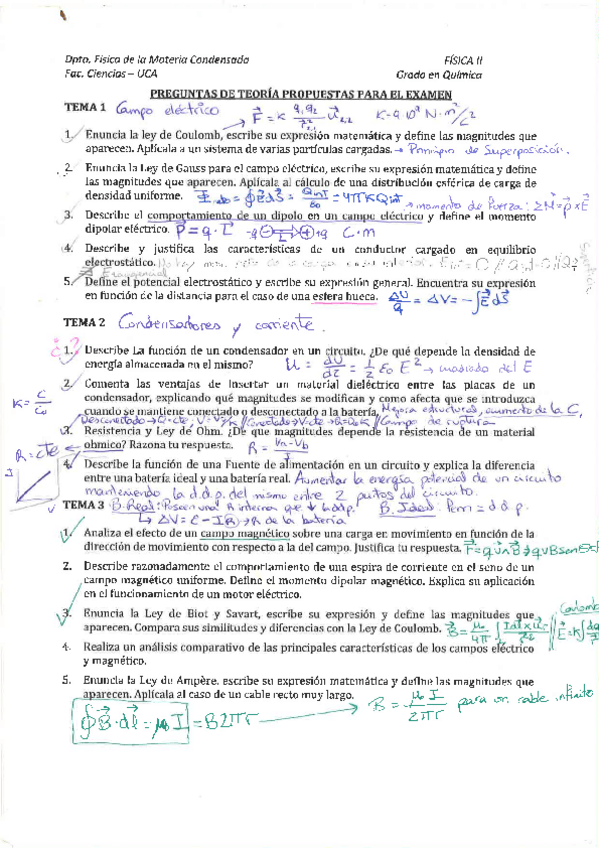 Dpto. Física de la Materia Condensada FÍSICA II
Fac. Ciencias – UCA Grado en Química
PREGUNTAS DE TEORÍA PROPUESTAS PARA EL EXAMEN
TEMA 1 Campo eléctrico F = K q₁q₂/r² u K=9·10⁹ N·m²/C²
1. Enuncia la ley de Coulomb, escribe su expresión matemática y define las magnitudes que
aparecen. Aplícala a un sistema de varias partículas cargadas. → Principio de Superposición.
2. Enuncia la Ley de Gauss para el campo eléctrico, escribe su expresión matemática y define
las magnitudes que aparecen. Aplícala al cálculo de una distribución esférica de carga de
densidad uniforme. = 4πKQint
momento de fuerza: ΣM = p×E
3. Describe el comportamiento de un dipolo en un campo eléctrico y define el momento
dipolar eléctrico. P = q·L -q +q C·m
4. Describe y justifica las características de un conductor cargado en equilibrio
electrostático.
5. Define el potencial electrostático y escribe su expresión general. Encuentra su expresión
en función de la distancia para el caso de una esfera hueca. ΔU/q = ΔV = -∫E dS
TEMA 2 Condensadores y corriente.
1. Describe La función de un condensador en un circuito. ¿De qué depende la densidad de
energía almacenada en el mismo? = 1/2 ε₀ E² →
2. Comenta las ventajas de insertar un material dieléctrico entre las placas de un
condensador, explicando qué magnitudes se modifican y como afecta que se introduzca
K = C/C₀
cuando se mantiene conectado o desconectado a la batería. Mejora estructuras, aumento de la C,
Desconectado → Q=cte; V=V₀/K // Conectado → V=cte → Q=Q₀K // Campo de ruptura
3. Resistencia y Ley de Ohm. ¿De que magnitudes depende la resistencia de un material
R = cte ohmico? Razona tu respuesta. R =
4. Describe la función de una Fuente de alimentación en un circuito y explica la diferencia
entre una batería ideal y una batería real. Aumentar la energía potencial de un circuito
manteniendo la d.d.p. del mismo entre 2 puntos del circuito.
TEMA 3 B. Real: Poseen una R interna que ↓ la ddp. B. Ideal: = d.d.p.
↳ ΔV = ε - IR → R de la batería
1. Analiza el efecto de un campo magnético sobre una carga en movimiento en función de la
dirección de movimiento con respecto a la del campo. Justifica tu respuesta. F = q v∧B
2. Describe razonadamente el comportamiento de una espira de corriente en el seno de un
campo magnético uniforme. Define el momento dipolar magnético. Explica su aplicación
en el funcionamiento de un motor eléctrico.
3. Enuncia la Ley de Biot y Savart, escribe su expresión y define las magnitudes que Coulomb
aparecen. Compara sus similitudes y diferencias con la Ley de Coulomb. B = μ₀/4π
4. Realiza un análisis comparativo de las principales características de los campos eléctrico
y magnético.
5. Enuncia la Ley de Ampère. escribe su expresión matemática y define las magnitudes que
aparecen. Aplícala al caso de un cable recto muy largo.
∮B·dl = μ₀ I = B2πr → B = μ₀ I / 2πr para un cable infinito